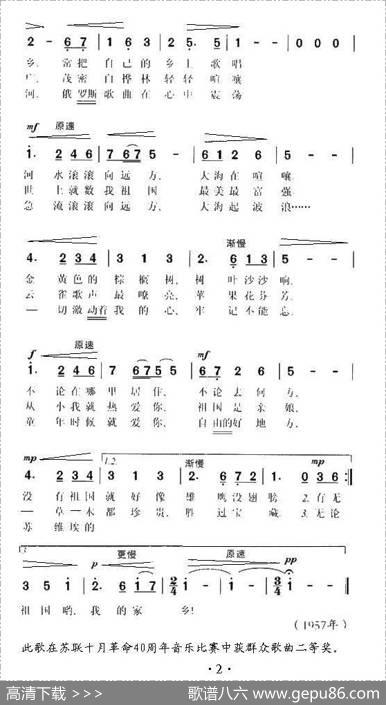 2 - 6 7 | 1 6 3 | 2 5. 5 | 1 - - | 0 0 0
乡，常把自己的乡土歌唱
广，茂密白桦林轻轻喧嚷
河，俄罗斯歌曲在心中震荡
mf 原速
1. 2 4 6 | 7 6 7 5 - | 6 1 2 6 | 5 - -
河水滚滚向远方，大海在喧嚷
世上就数我祖国，最美最富强
急流滚滚向远方，大海起波浪……
渐慢
4. 2 3 4 | 3 1 3 | 2. 6 1 3 | 5 - -
金黄色的棕榈树，树叶沙沙响，
云雀歌声最嘹亮，苹果花芬芳，
一切激动着我的心，牢记不能忘，
f 原速 mf
1. 2 4 6 | 7 6 7 5 5 | 6 1 2 6 | 5 - -
不论在哪里居住，不论去何方，
从小我就热爱你，祖国是亲娘，
童年时候就爱你，自由的好地方，
mp 1.2. 渐慢 mp
4. 2 3 4 | 3 1 3 | 2. 6 7 2 | 1. 0 3 6 :||
没有祖国就好像雄鹰没翅膀 2.有无
一草一木都珍贵，胜过宝藏 3.无论
苏维埃的
p 更慢 原速 pp
3 5 1 | 2. 6 1 7 | 2/4 1 - | 1 - | 3/4 1 - -
祖国哟，我的家乡！
(1957年)
此歌在苏联十月革命40周年音乐比赛中获群众歌曲二等奖。
· 2 ·
高清下载 >>> 歌谱八六 www.gepu86.com